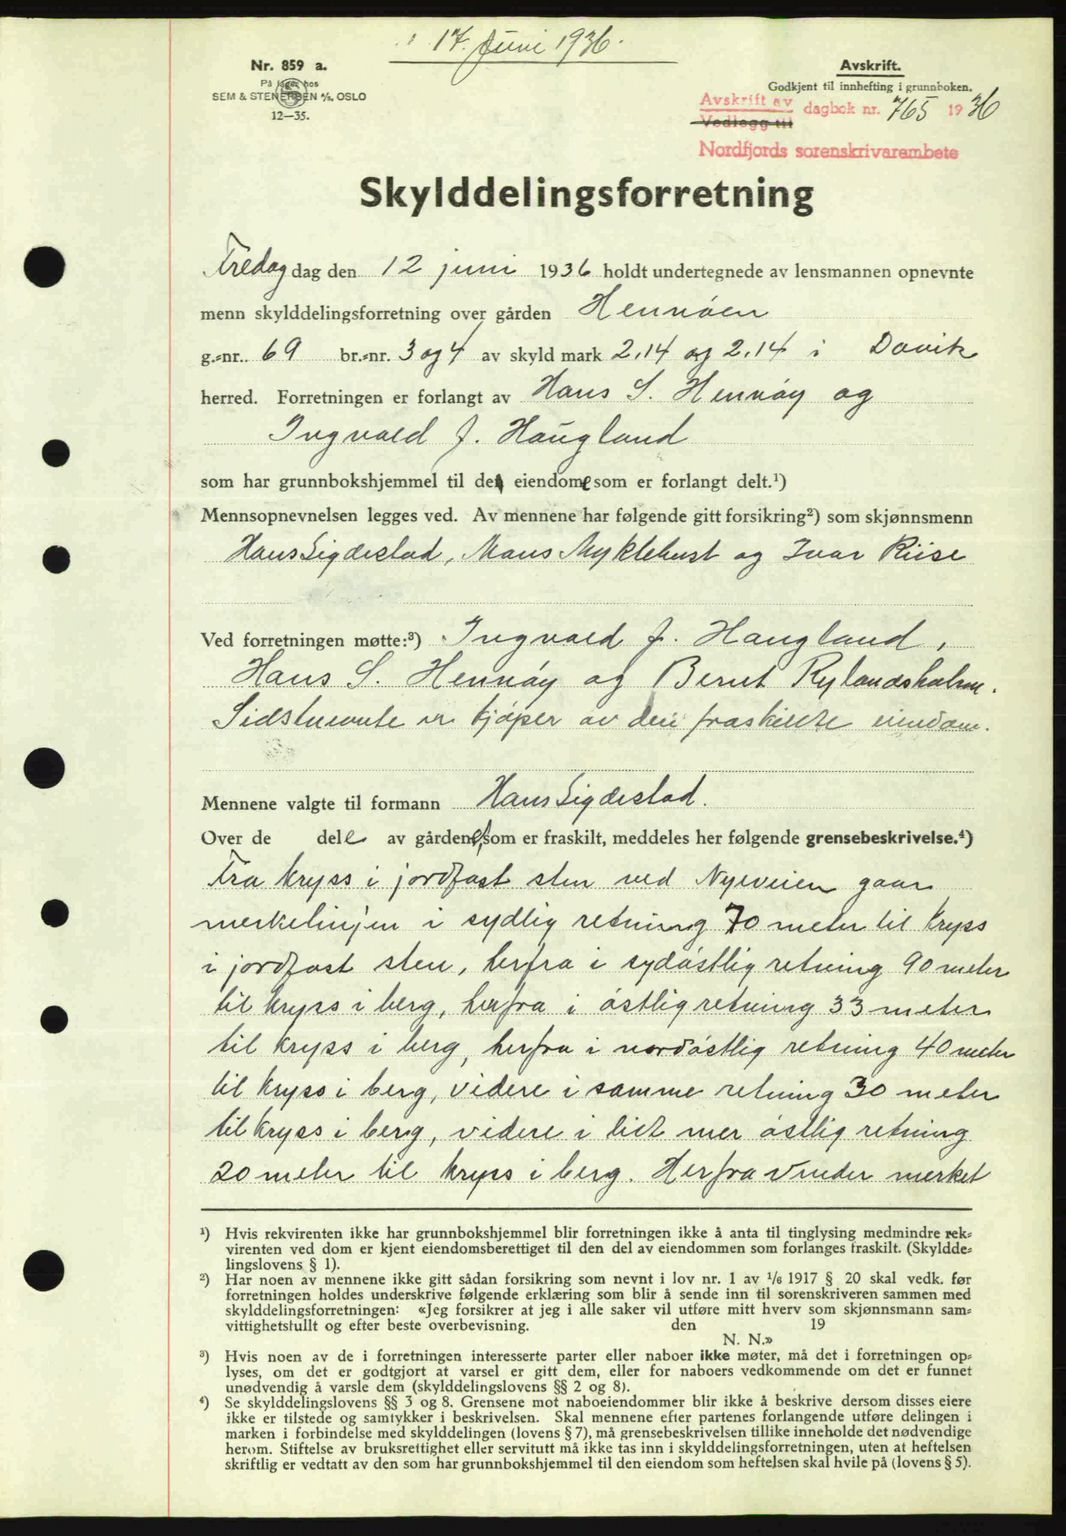 17. Juni 1936.
Nr. 859 a.
På lager hos
SEM & STENERSEN A/S, OSLO
12—35.
Avskrift.
Godkjent til innhefting i grunnboken.
Avskrift av
Vedlegg til
dagbok nr. 765 1936
Nordfjords sorenskrivarembete
Skylddelingsforretning
Fredag dag den 12 juni 1936 holdt undertegnede av lensmannen opnevnte
menn skylddelingsforretning over gården Hennöen
g.-nr. 69 br.-nr. 3 og 4 av skyld mark 2.14 og 2.14 i Davik
herred. Forretningen er forlangt av Hans S. Hennöy og
Ingvald J. Haugland
som har grunnbokshjemmel til de eiendome som er forlangt delt.¹)
Mennsopnevnelsen legges ved. Av mennene har følgende gitt forsikring²) som skjønnsmenn
Hans Sigdestad, Mons Myklebust og Ivar Riise
Ved forretningen møtte:³) Ingvald J. Haugland,
Hans S. Hennöy og Bernt Rylandsholm.
Sidstnevnte er kjöper av den fraskilte eiendom.
Mennene valgte til formann Hans Sigdestad.
Over de dele av gårdene, som er fraskilt, meddeles her følgende grensebeskrivelse.⁴)
Fra kryss i jordfast sten ved Nyeveien gaar
merkelinjen i sydlig retning 70 meter til kryss
i jordfast sten, herfra i sydöstlig retning 90 meter
til kryss i berg, herfra i östlig retning 33 meter
til kryss i berg, herfra i nordöstlig retning 40 meter
til kryss i berg, videre i samme retning 30 meter
til kryss i berg, videre i litt mer östlig retning
20 meter til kryss i berg. Herfra vender merket
¹) Hvis rekvirenten ikke har grunnbokshjemmel blir forretningen ikke å anta til tinglysing medmindre rek-
virenten ved dom er kjent eiendomsberettiget til den del av eiendommen som forlanges fraskilt. (Skyldde-
lingslovens § 1).
²) Har noen av mennene ikke gitt sådan forsikring som nevnt i lov nr. 1 av 1/6 1917 § 20 skal vedk. før
forretningen holdes underskrive følgende erklæring som blir å sende inn til sorenskriveren sammen med
skylddelingsforretningen: «Jeg forsikrer at jeg i alle saker vil utføre mitt hverv som skjønnsmann sam-
vittighetsfullt og efter beste overbevisning. den 19
N. N.»
³) Hvis noen av de i forretningen interesserte parter eller naboer ikke møter, må det i forretningen op-
lyses, om det er godtgjort at varsel er gitt dem, eller for naboers vedkommende om det er funnet
unødvendig å varsle dem (skylddelingslovens §§ 2 og 8).
⁴) Se skylddelingslovens §§ 3 og 8. Grensene mot naboeiendommer blir ikke å beskrive dersom disses eiere
ikke er tilstede og samtykker i beskrivelsen. Skal mennene efter partenes forlangende utføre delingen i
marken i forbindelse med skylddelingen (lovens § 7), må grensebeskrivelsen tillike inneholde det nødvendige
herom. Stiftelse av bruksrettighet eller servitutt må ikke tas inn i skylddelingsforretningen, uten at heftelsen
skriftlig er vedtatt av den som har grunnbokshjemmel til den eiendom som heftelsen skal hvile på (lovens § 5).